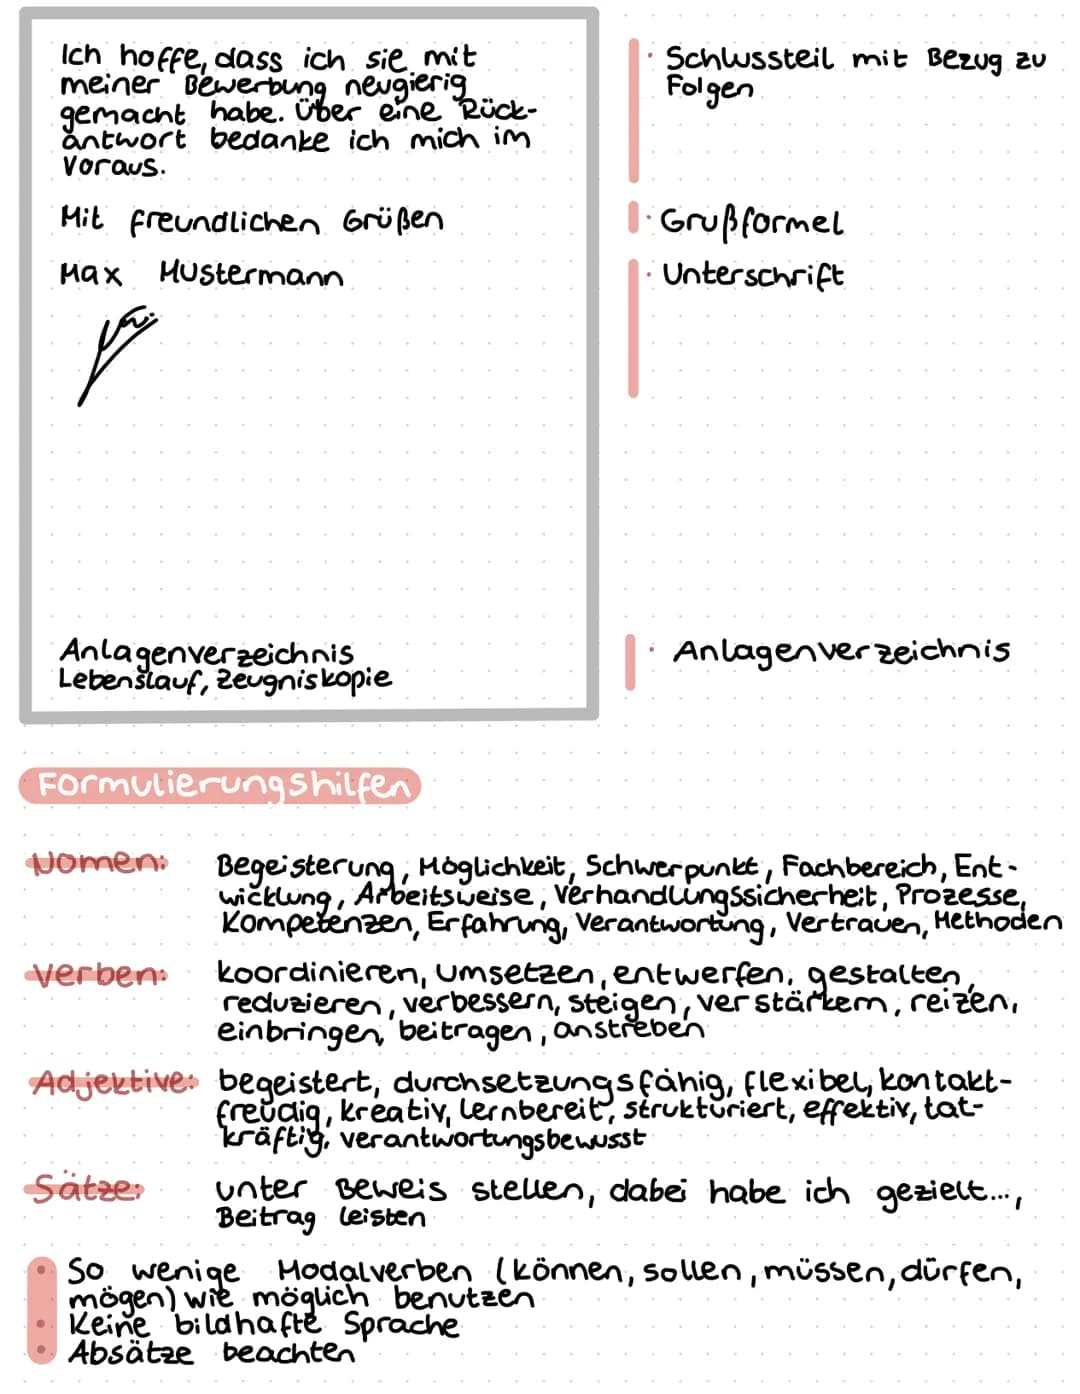 Ich hoffe, dass ich sie mit
meiner Bewerbung neugierig
gemacht habe. Über eine Rück-
antwort bedanke ich mich im
Voraus.
Mit freundlichen Grüßen
Max Mustermann
Anlagenverzeichnis
Lebenslauf, Zeugniskopie
· Schlussteil mit Bezug zu
Folgen
· Grußformel
· Unterschrift
· Anlagenverzeichnis
Formulierungshilfen
Nomen: Begeisterung, Möglichkeit, Schwerpunkt, Fachbereich, Ent-
wicklung, Arbeitsweise, Verhandlungssicherheit, Prozesse,
Kompetenzen, Erfahrung, Verantwortung, Vertrauen, Methoden
Verben: koordinieren, umsetzen, entwerfen, gestalten,
reduzieren, verbessern, steigen, verstärkem, reizen,
einbringen, beitragen, anstreben
Adjektive: begeistert, durchsetzungsfähig, flexibel, kontakt-
freudig, kreativ, lernbereit, strukturiert, effektiv, tat-
kräftig, verantwortungsbewusst
Sätze: unter Beweis stellen, dabei habe ich gezielt...,
Beitrag leisten
• So wenige Modalverben (können, sollen, müssen, dürfen,
mögen) wie möglich benutzen
• Keine bildhafte Sprache
• Absätze beachten